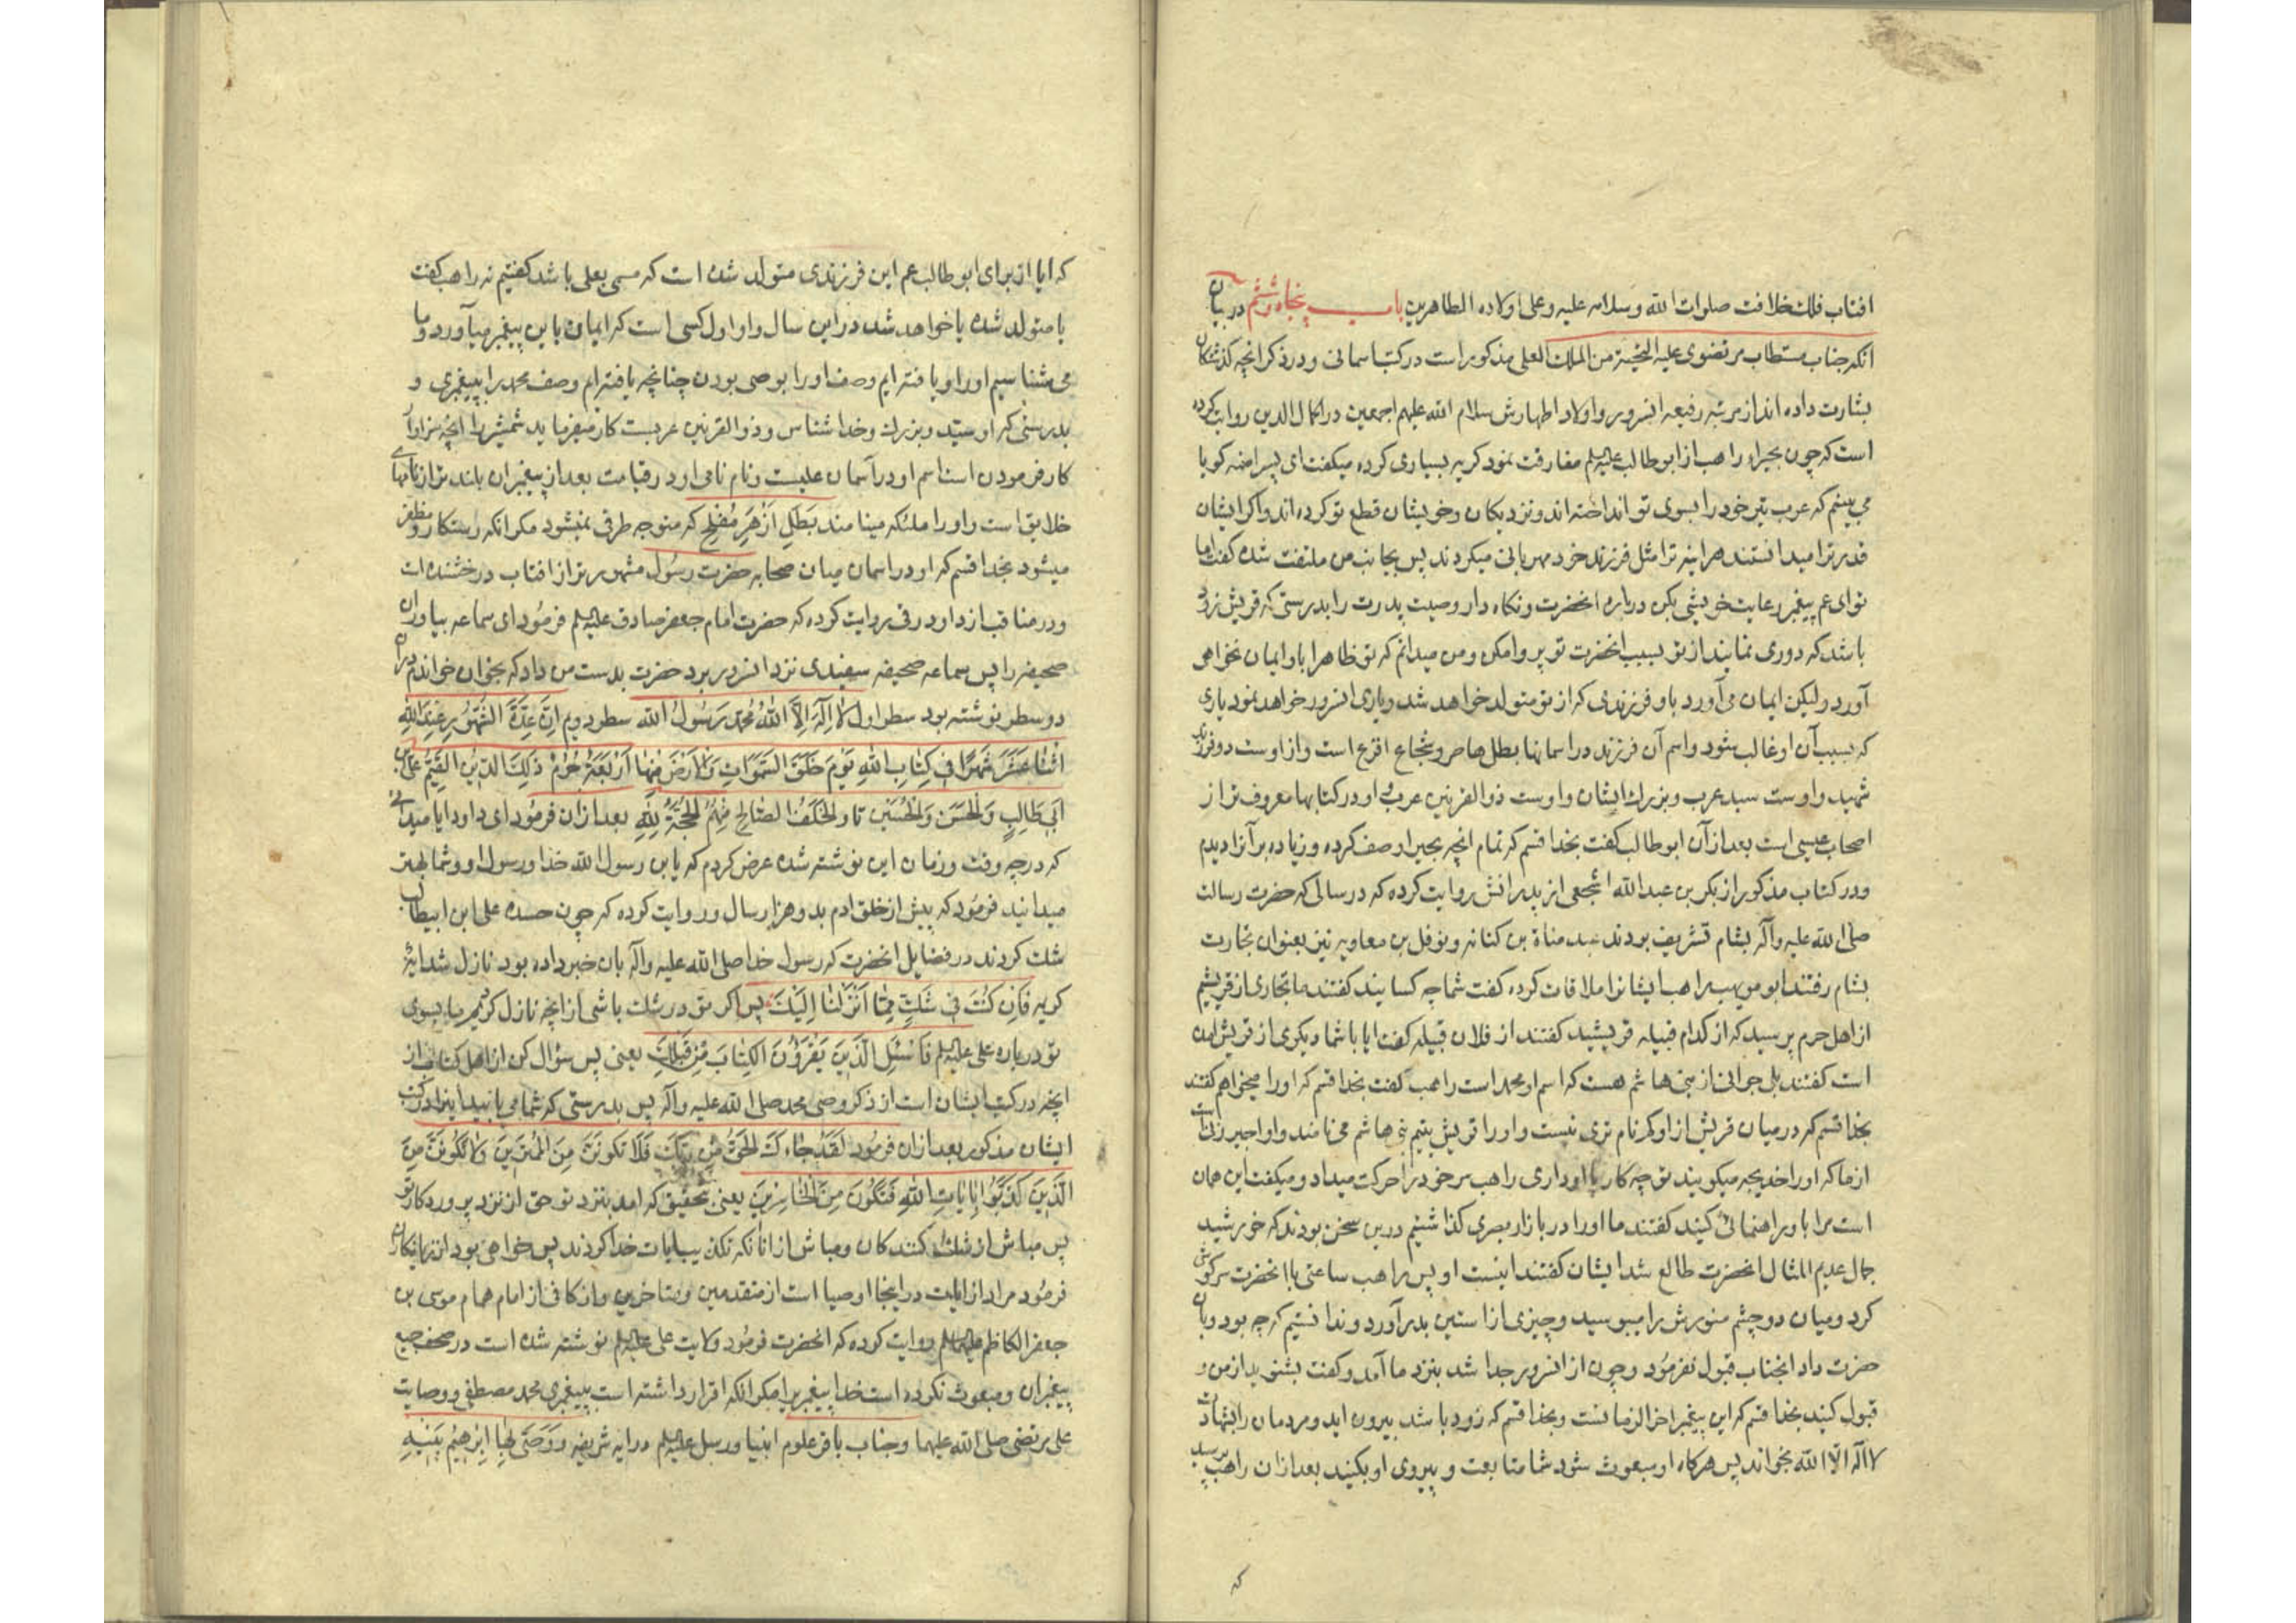 افتاب فلک خلافت صلوات الله وسلامه علیه وعلی اولاده الطاهرین باب پنجاه وششم در بیان
انکه جناب مستطاب مرتضوی علیه التحیة من الملک العلی مذکور است در کتب اسمانی و در ذکر انچه کذشتکان
بشارت داده اند از مرتبه رفیعه انسرور واولاد اطهارش سلام الله علیهم اجمعین در اکمال الدین روایت کرده
است که چون بحیراء راهب از ابوطالب علیه السلم مفارقت نمود کریه بسیاری کرده میکفت ای پسر امنه کویا
می بینم که عرب تیر خود را بسوی تو انداخته اند ونزدیکان وخویشان قطع تو کرده اند واکر ایشان
قدر ترا میدانستند هراینه ترا مثل فرزند خود مهربانی میکردند پس بجانب من ملتفت شده کفت اما
تو ای عم پیغمبر رعایت خویشی بکن درباره انحضرت ونکاه دار وصیت پدرت را بدرستی که قریش زود
باشد که دوری نمایند از تو بسبب انحضرت تو پروا مکن ومن میدانم که تو ظاهرا باو ایمان نخواهی
آورد ولیکن ایمان می آورد باو فرزندی که از تو متولد خواهد شد ویاری انسرور خواهد نمود یاری
که بسبب آن او غالب شود واسم آن فرزند در اسمانها بطل هاصر وشجاع اقرع است واز اوست دو فرزند
شهید واوست سید عرب وبزرک ایشان واوست ذوالقرنین عرب واو در کتابها معروف تر از
اصحاب عیسی است بعد از آن ابوطالب کفت بخدا قسم که تمام انچه بحیرا وصف کرده وزیاده بر آنرا دیدم
ودر کتاب مذکور از بکر بن عبدالله اشجعی از پدرانش روایت کرده که در سالی که حضرت رسالت
صلی الله علیه وآله بشام تشریف بردند عبد مناة بن کنانه ونوفل بن معاویه نیز بعنوان تجارت
بشام رفتند ابو مویهب راهب ایشانرا ملاقات کرده کفت شما چه کسانید کفتند ما تجاری از قریشیم
از اهل حرم پرسید که از کدام قبیله قریشید کفتند از فلان قبیله کفت ایا با شما دیکری از قریش امده
است کفتند بلی جوانی از بنی هاشم هست که اسم او محمد است راهب کفت بخدا قسم که او را میخواهم کفتند
بخدا قسم که در میان قریش از او کم نام تری نیست واو را قریش یتیم بنی هاشم می نامند واو اجیر زنیست
از ما که او را خدیجه میکویند تو چه کار با او داری راهب سر خود را حرکت میداد ومیکفت این همان
است مرا باو راهنمائی کنید کفتند ما او را در بازار بصری کذاشتیم درین سخن بودند که خورشید
جمال عدیم المثال انحضرت طالع شد ایشان کفتند اینست او پس راهب ساعتی با انحضرت سرکوشی
کرد ومیان دو چشم منورش را میبوسید وچیزی از استین بدر آورد وندانستیم که چه بود وبان
حضرت داد انجناب قبول نفرمود وچون از انسرور جدا شد بنزد ما آمد وکفت بشنوید از من و
قبول کنید بخدا قسم که این پیغمبر اخر الزمانست وبخدا قسم که زود باشد بیرون اید ومردمان را بشهادت
لا اله الا الله بخواند پس هرکاه او مبعوث شود شما متابعت وپیروی او بکنید بعد از ان راهب پرسید
که
که ایا از برای ابوطالب عم این فرزندی متولد شده است که مسمی بعلی باشد کفتیم نه راهب کفت
یا متولد شده یا خواهد شد در این سال واو اول کسی است که ایمان باین پیغمبر میآورد وما
می شناسیم او را ویافته ایم وصف او را بوصی بودن چنانچه یافته ایم وصف محمد را بپیغمبری و
بدرستی که او سید وبزرک وخداشناس وذوالقرنین عربست کار میفرماید شمشیر را انچه سزاوار
کار فرمودن است اسم او در آسمان علیست ونام نامی او در قیامت بعد از پیغمبران بلند تر از نامهای
خلایق است واو را ملئکه مینامند بطل ازهر مفلح که متوجه طرفی نمیشود مکر انکه رستکار ومظفر
میشود بخدا قسم که او در اسمان میان صحابه حضرت رسول مشهور تر از افتاب درخشنده است
ودر مناقب از داود رقی روایت کرده که حضرت امام جعفر صادق علیه السلم فرمود ای سماعه بیاور ان
صحیفه را پس سماعه صحیفه سفیدی نزد انسرور برد حضرت بدست من داد که بخوان خواندم در ان
دو سطر نوشته بود سطر اول لا اله الا الله محمد رسول الله سطر دویم ان عدة الشهور عند الله
اثنا عشر شهرا فی کتاب الله یوم خلق السموات والارض منها اربعة حرم ذلک الدین القیم علی بن
ابی طالب والحسن والحسین تا والخلف الصالح منهم الحجة لله بعد از ان فرمود ای داود ایا میدانی
که در چه وقت وزمان این نوشته شده عرض کردم که یابن رسول الله خدا ورسول او وشما بهتر
میدانید فرمود که پیش از خلق ادم بدو هزار سال وروایت کرده که چون حسده علی ابن ابیطالب
شک کردند در فضایل انحضرت که رسول خدا صلی الله علیه وآله بان خبر داده بود نازل شد ایهٔ
کریمه فان کنت فی شک مما انزلنا الیک پس اکر تو در شک باشی از انچه نازل کردیم ما بسوی
تو درباره علی علیه السلم فاسئل الذین یقرؤن الکتاب من قبلک یعنی پس سؤال کن از اهل کتاب از
انچه در کتب ایشان است از ذکر وصی محمد صلی الله علیه وآله پس بدرستی که شما می یابید اینرا در کتب
ایشان مذکور بعد از ان فرمود لقد جاءک الحق من ربک فلا تکونن من الممترین ولا تکونن من
الذین کذبوا بایات الله فتکون من الخاسرین یعنی بتحقیق که امد بنزد تو حق از نزد پروردکار تو
پس مباش از شک کنندکان ومباش از انانکه تکذیب بایات خدا کردند پس خواهی بود از زیانکاران
فرمود مراد از ایات در اینجا اوصیا است از متقدمین ومتاخرین واز کافی از امام همام موسی بن
جعفر الکاظم علیهما السلم روایت کرده که انحضرت فرمود ولایت علی علیه السلم نوشته شده است در صحف جمیع
پیغمبران ومبعوث نکرده است خدا پیغمبریرا مکر انکه اقرار داشته است بپیغمبری محمد مصطفی ووصایت
علی مرتضی صلی الله علیهما وجناب باقر علوم انبیا ورسل علیه السلم در ایه شریفه ووصی بها ابرهیم بنیه